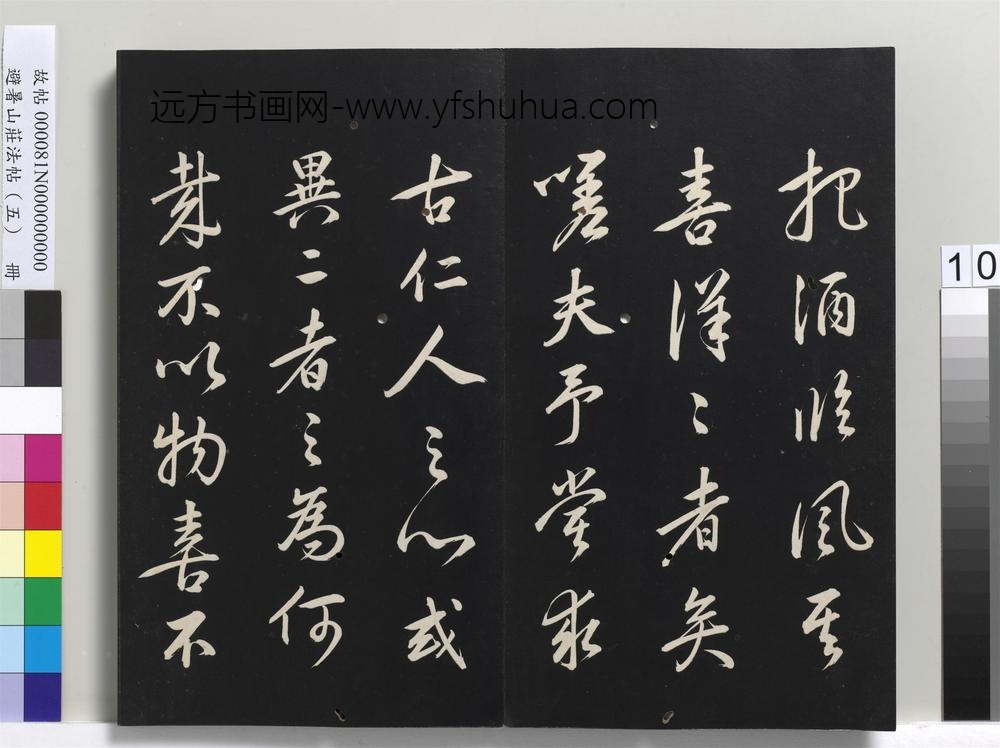 远方书画网-www.yfshuhua.com
把酒临风其
喜洋〻者矣
嗟夫予嘗求
古仁人之心或
異二者之為何
哉不以物喜不
故帖 000081N000000000
避暑山莊法帖（五） 冊
10